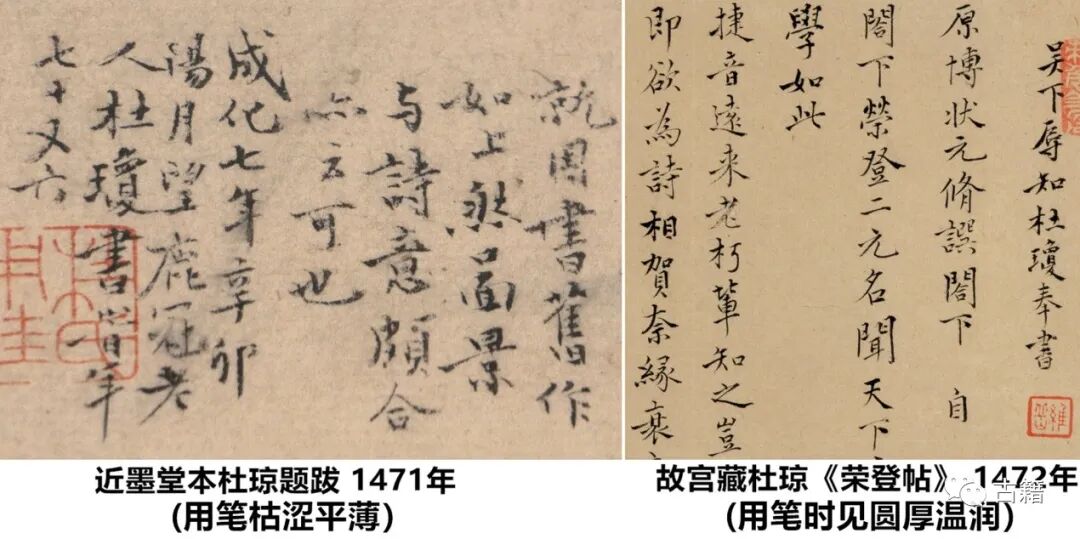 就因書舊作
如上然啚景
与詩意頗合
亦云可也
成化七年辛卯
陽月望鹿冠老
人杜瓊書旹年
七十又六
近墨堂本杜琼题跋 1471年
(用笔枯涩平薄)
吴下辱知杜瓊奉書
原博状元脩譔閤下 自
閤下榮登二元名聞天下
學如此
捷音遠来老朽輩知之豈
即欲為詩相賀奈縁衰
故宫藏杜琼《荣登帖》 1472年
(用笔时见圆厚温润)
古籍